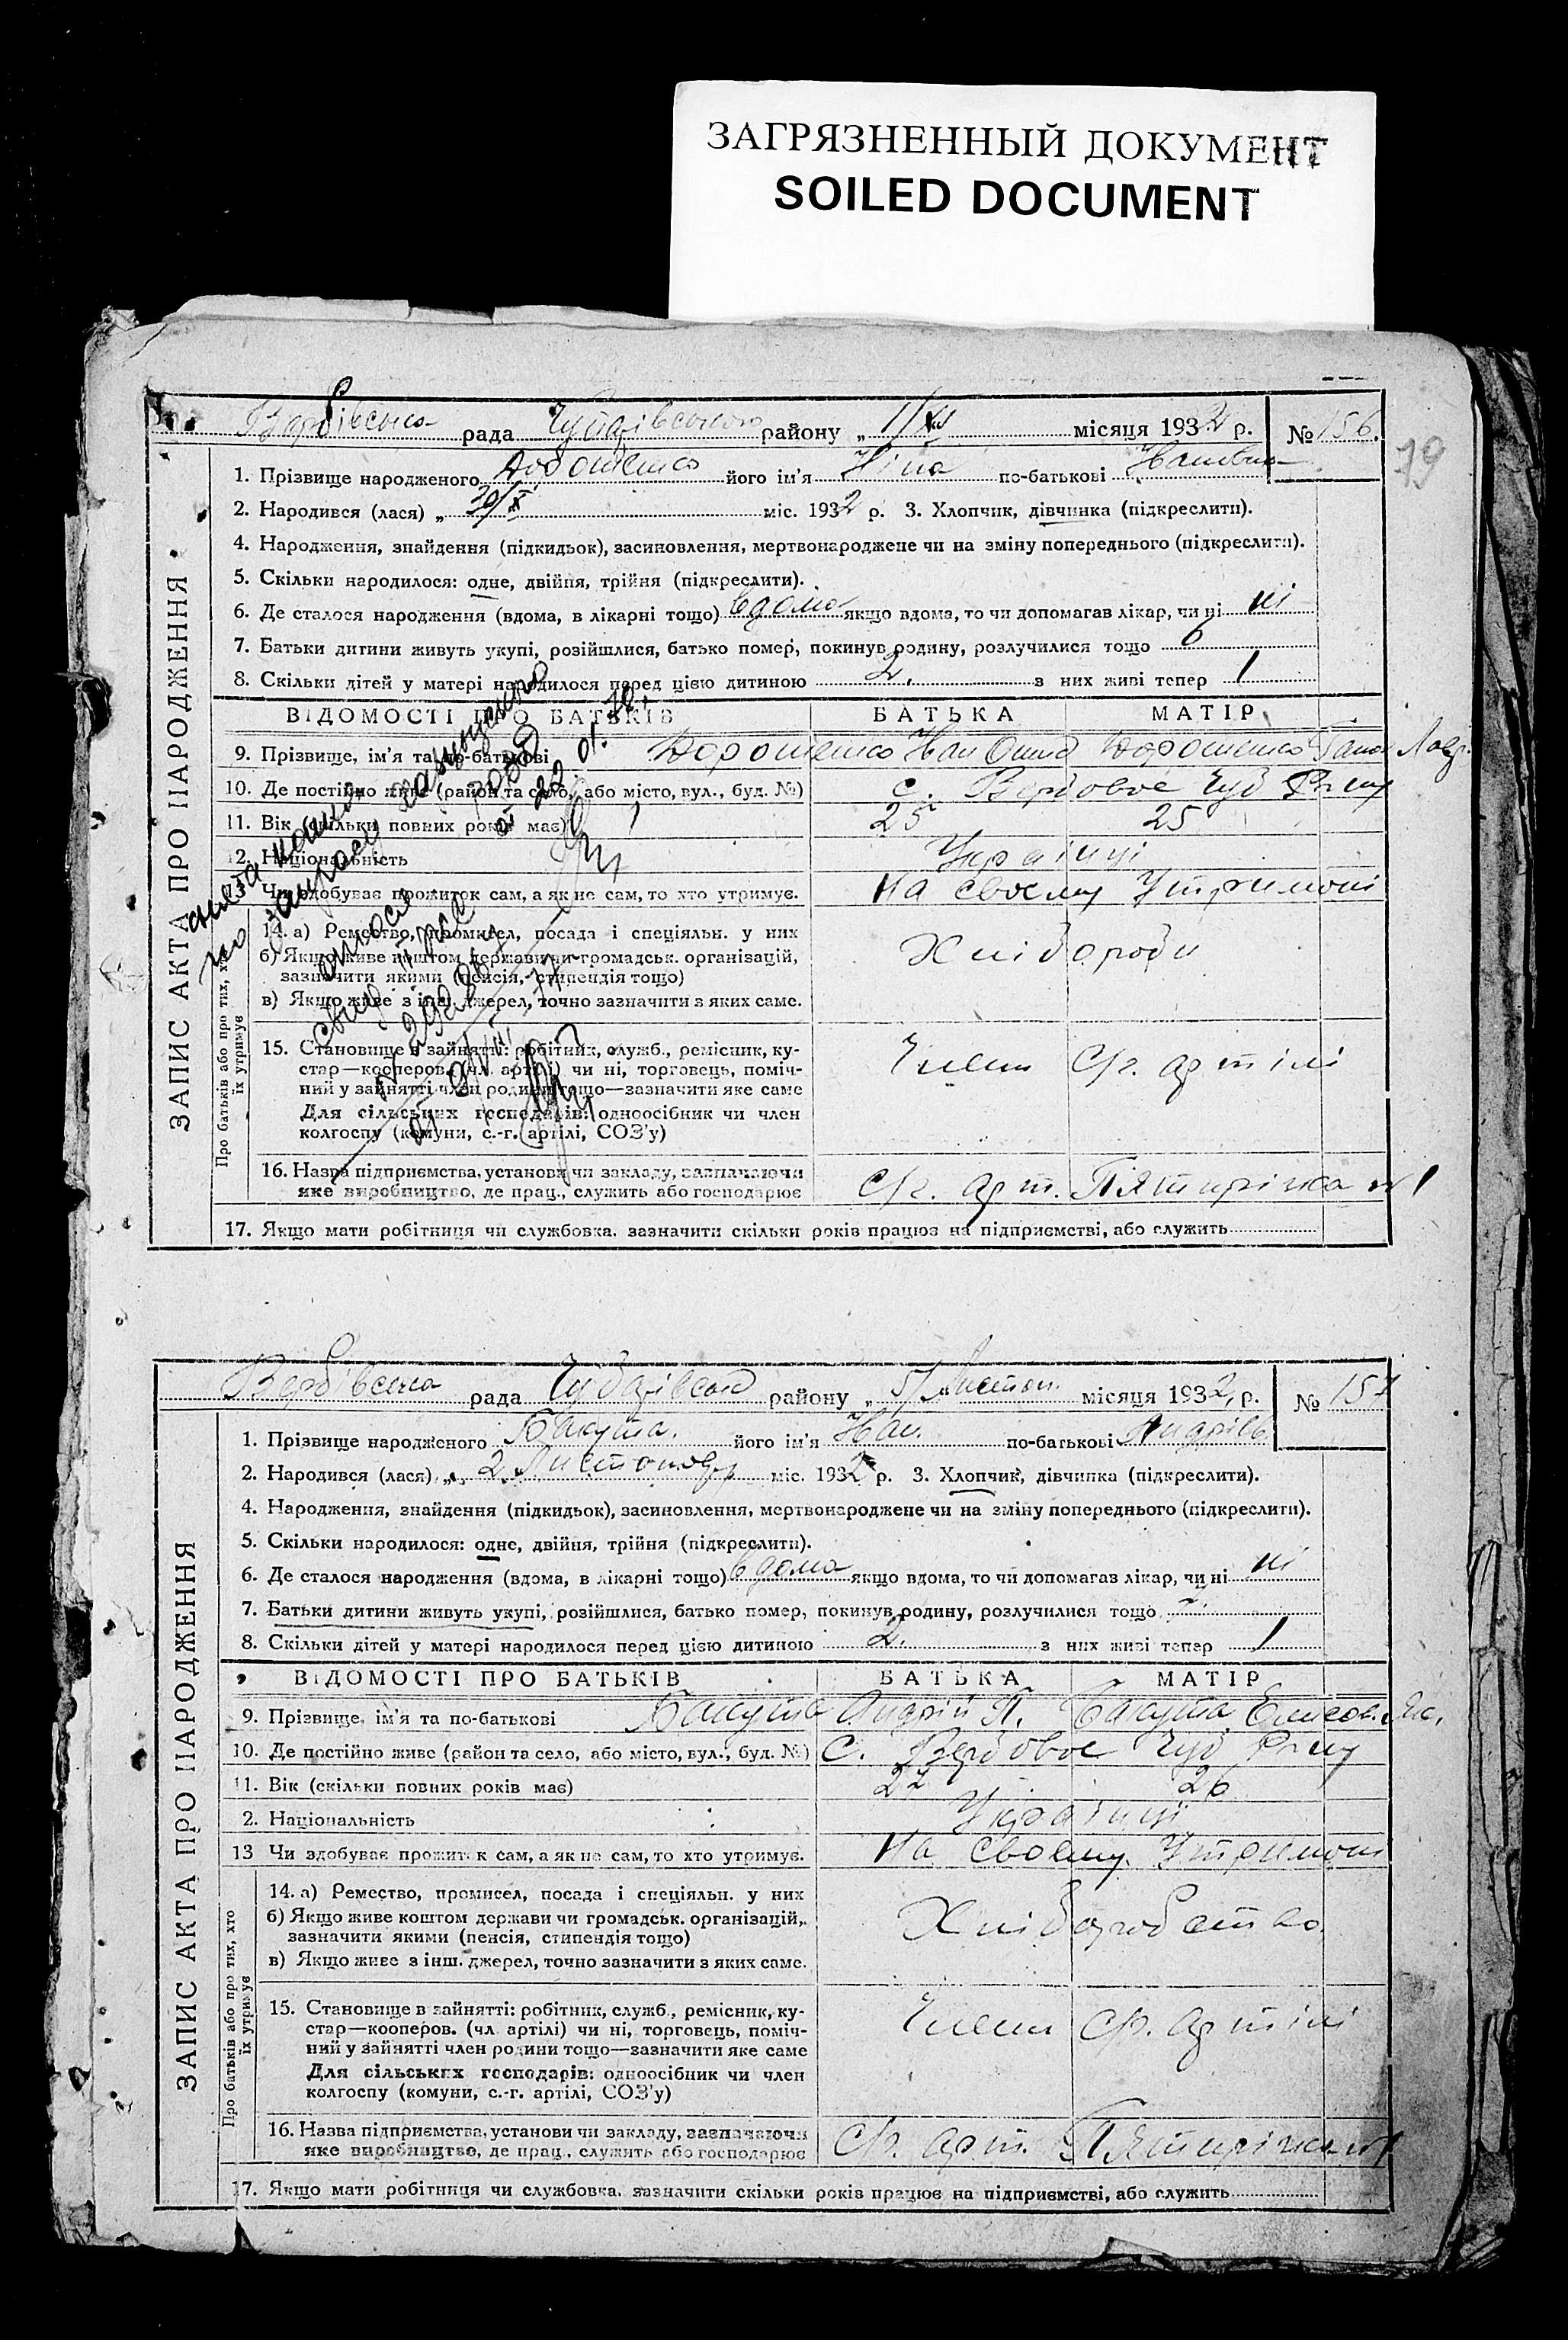 ЗАГРЯЗНЕННЫЙ ДОКУМЕНТ
SOILED DOCUMENT
19
рада району „ 1/XI місяця 1932 р. № 156.
ЗАПИС АКТА ПРО НАРОДЖЕННЯ
1. Прізвище народженого його ім'я Ніна по-батькові
2. Народився (лася) „ 30/X міс. 1932 р. 3. Хлопчик, дівчинка (підкреслити).
4. Народження, знайдення (підкидьок), засиновлення, мертвонароджене чи на зміну попереднього (підкреслити).
5. Скільки народилося: одне, двійня, трійня (підкреслити).
6. Де сталося народження (вдома, в лікарні тощо) вдома якщо вдома, то чи допомагав лікар, чи ні ні
7. Батьки дитини живуть укупі, розійшлися, батько помер, покинув родину, розлучилися тощо
8. Скільки дітей у матері народилося перед цією дитиною 2. з них живі тепер 1
ВІДОМОСТІ ПРО БАТЬКІВ БАТЬКА МАТІР
9. Прізвище, ім'я та по-батькові Дорошенко Іван Дорошенко
10. Де постійно живе (район та село, або місто, вул., буд. №) с. Вербовое
11. Вік (скільки повних років має) 25 25
12. Національність Українці
13 Чи здобуває прожиток сам, а як не сам, то хто утримує. На своєму
Про батьків або про тих, хто їх утримує
14. а) Ремество, промисел, посада і спеціяльн. у них
б) Якщо живе коштом держави чи громадськ. організацій,
зазначити якими (пенсія, стипендія тощо)
в) Якщо живе з інш. джерел, точно зазначити з яких саме.
15. Становище в зайнятті: робітник, служб., ремісник, ку-
стар—кооперов. (чл. артілі) чи ні, торговець, поміч-
ний у зайнятті член родини тощо—зазначити яке саме
Член Ср. артілі
Для сільських господарів: одноосібник чи член
колгоспу (комуни, с.-г. артілі, СОЗ'у)
16. Назва підприємства, установи чи закладу, зазначаючи
яке виробництво, де прац., служить або господарює Ср. арт. Пятирічка №1
17. Якщо мати робітниця чи службовка, зазначити скільки років працює на підприємстві, або служить
рада району „ 5/Листоп. місяця 1932 р. № 157
ЗАПИС АКТА ПРО НАРОДЖЕННЯ
1. Прізвище народженого Бакута. його ім'я Іван. по-батькові Андрієв.
2. Народився (лася) „ 2 Листопада міс. 1932 р. 3. Хлопчик, дівчинка (підкреслити).
4. Народження, знайдення (підкидьок), засиновлення, мертвонароджене чи на зміну попереднього (підкреслити).
5. Скільки народилося: одне, двійня, трійня (підкреслити).
6. Де сталося народження (вдома, в лікарні тощо) вдома якщо вдома, то чи допомагав лікар, чи ні ні
7. Батьки дитини живуть укупі, розійшлися, батько помер, покинув родину, розлучилися тощо
8. Скільки дітей у матері народилося перед цією дитиною 2. з них живі тепер 1
ВІДОМОСТІ ПРО БАТЬКІВ БАТЬКА МАТІР
9. Прізвище, ім'я та по-батькові Бакута Андрій П. Бакута
10. Де постійно живе (район та село, або місто, вул., буд. №) С. Вербовое
11. Вік (скільки повних років має) 27 26
2. Національність Українці
13 Чи здобуває прожиток сам, а як не сам, то хто утримує. На своєму
Про батьків або про тих, хто їх утримує
14. а) Ремество, промисел, посада і спеціяльн. у них
б) Якщо живе коштом держави чи громадськ. організацій,
зазначити якими (пенсія, стипендія тощо) Хліборобство.
в) Якщо живе з інш. джерел, точно зазначити з яких саме.
15. Становище в зайнятті: робітник, служб., ремісник, ку-
стар—кооперов. (чл. артілі) чи ні, торговець, поміч-
ний у зайнятті член родини тощо—зазначити яке саме
Член Ср. артілі
Для сільських господарів: одноосібник чи член
колгоспу (комуни, с.-г. артілі, СОЗ'у)
16. Назва підприємства, установи чи закладу, зазначаючи
яке виробництво, де прац., служить або господарює Ср. арт. Пятирічка №1
17. Якщо мати робітниця чи службовка, зазначити скільки років працює на підприємстві, або служить